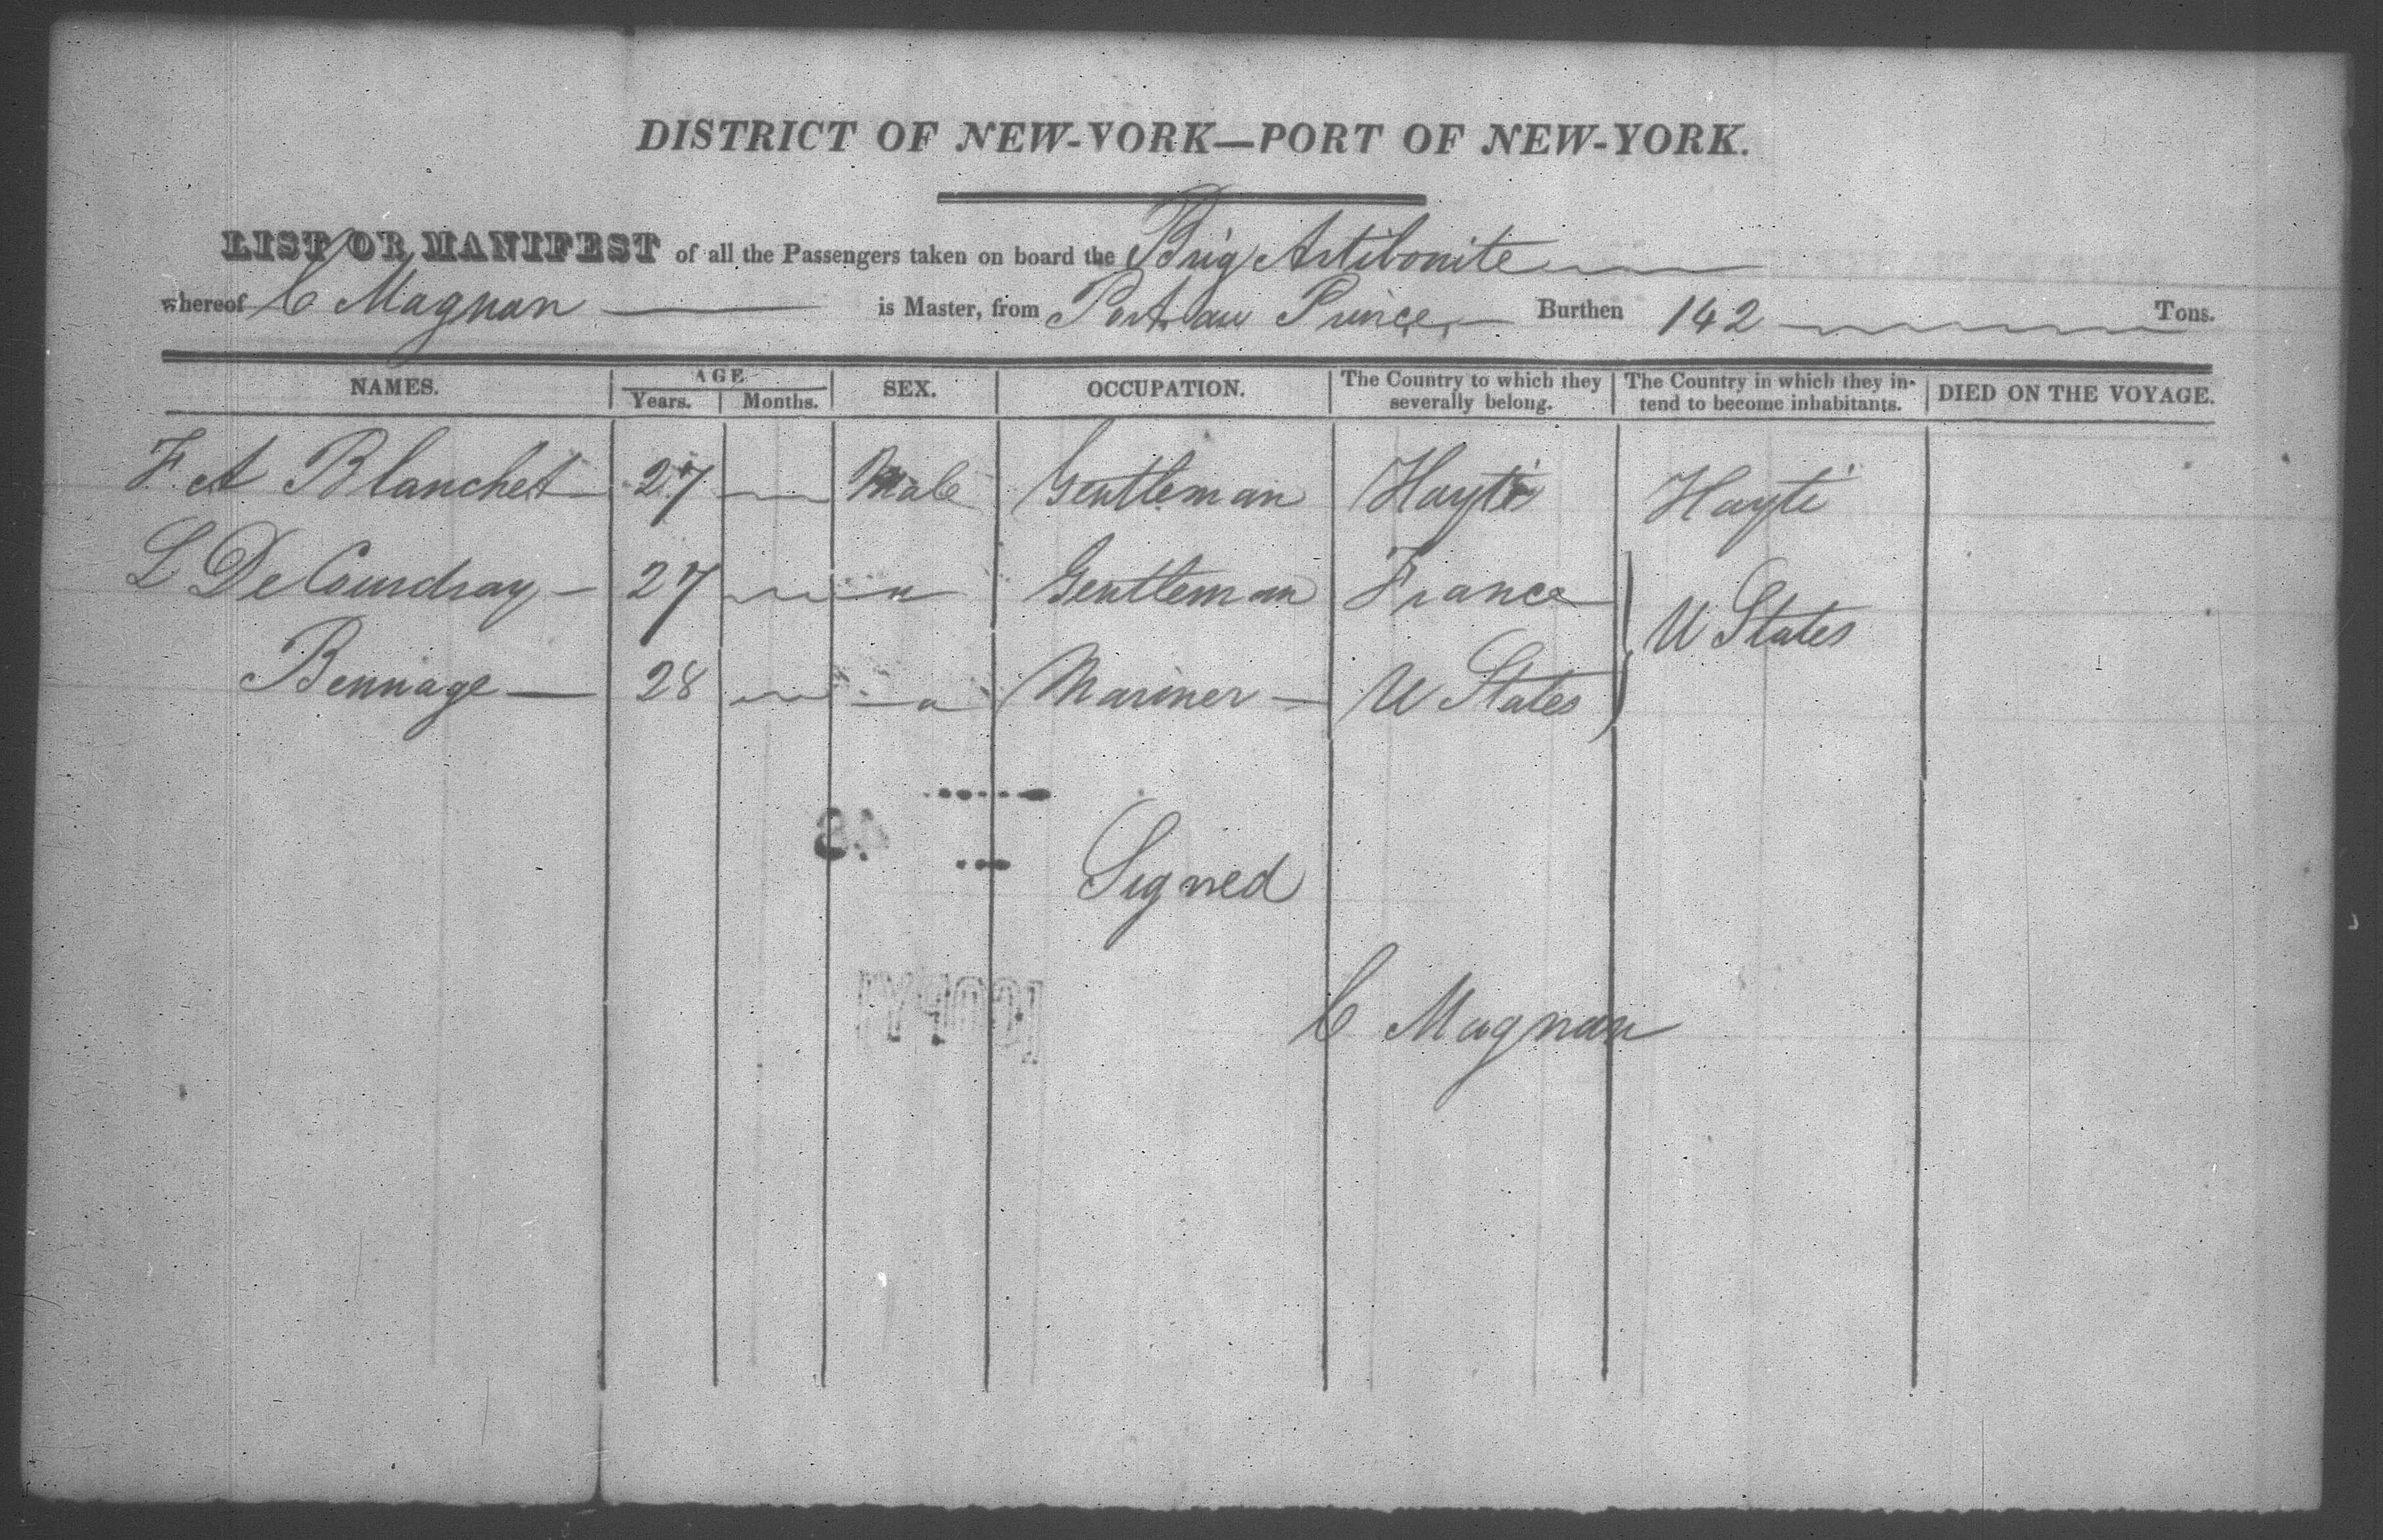 DISTRICT OF NEW-YORK—PORT OF NEW-YORK.
LIST OR MANIFEST of all the Passengers taken on board the Brig Artibonite
whereof C Magnan is Master, from Port au Prince, Burthen 142 Tons.
NAMES. AGE SEX. OCCUPATION. The Country to which they severally belong. The Country in which they in-tend to become inhabitants. DIED ON THE VOYAGE.
Years. Months.
F. A Blanchet 27 Male Gentleman Hayti Hayti
L De Courdray 27 " Gentleman France U States
Bennage 28 " Mariner U States
Signed
COPY
C Magnan